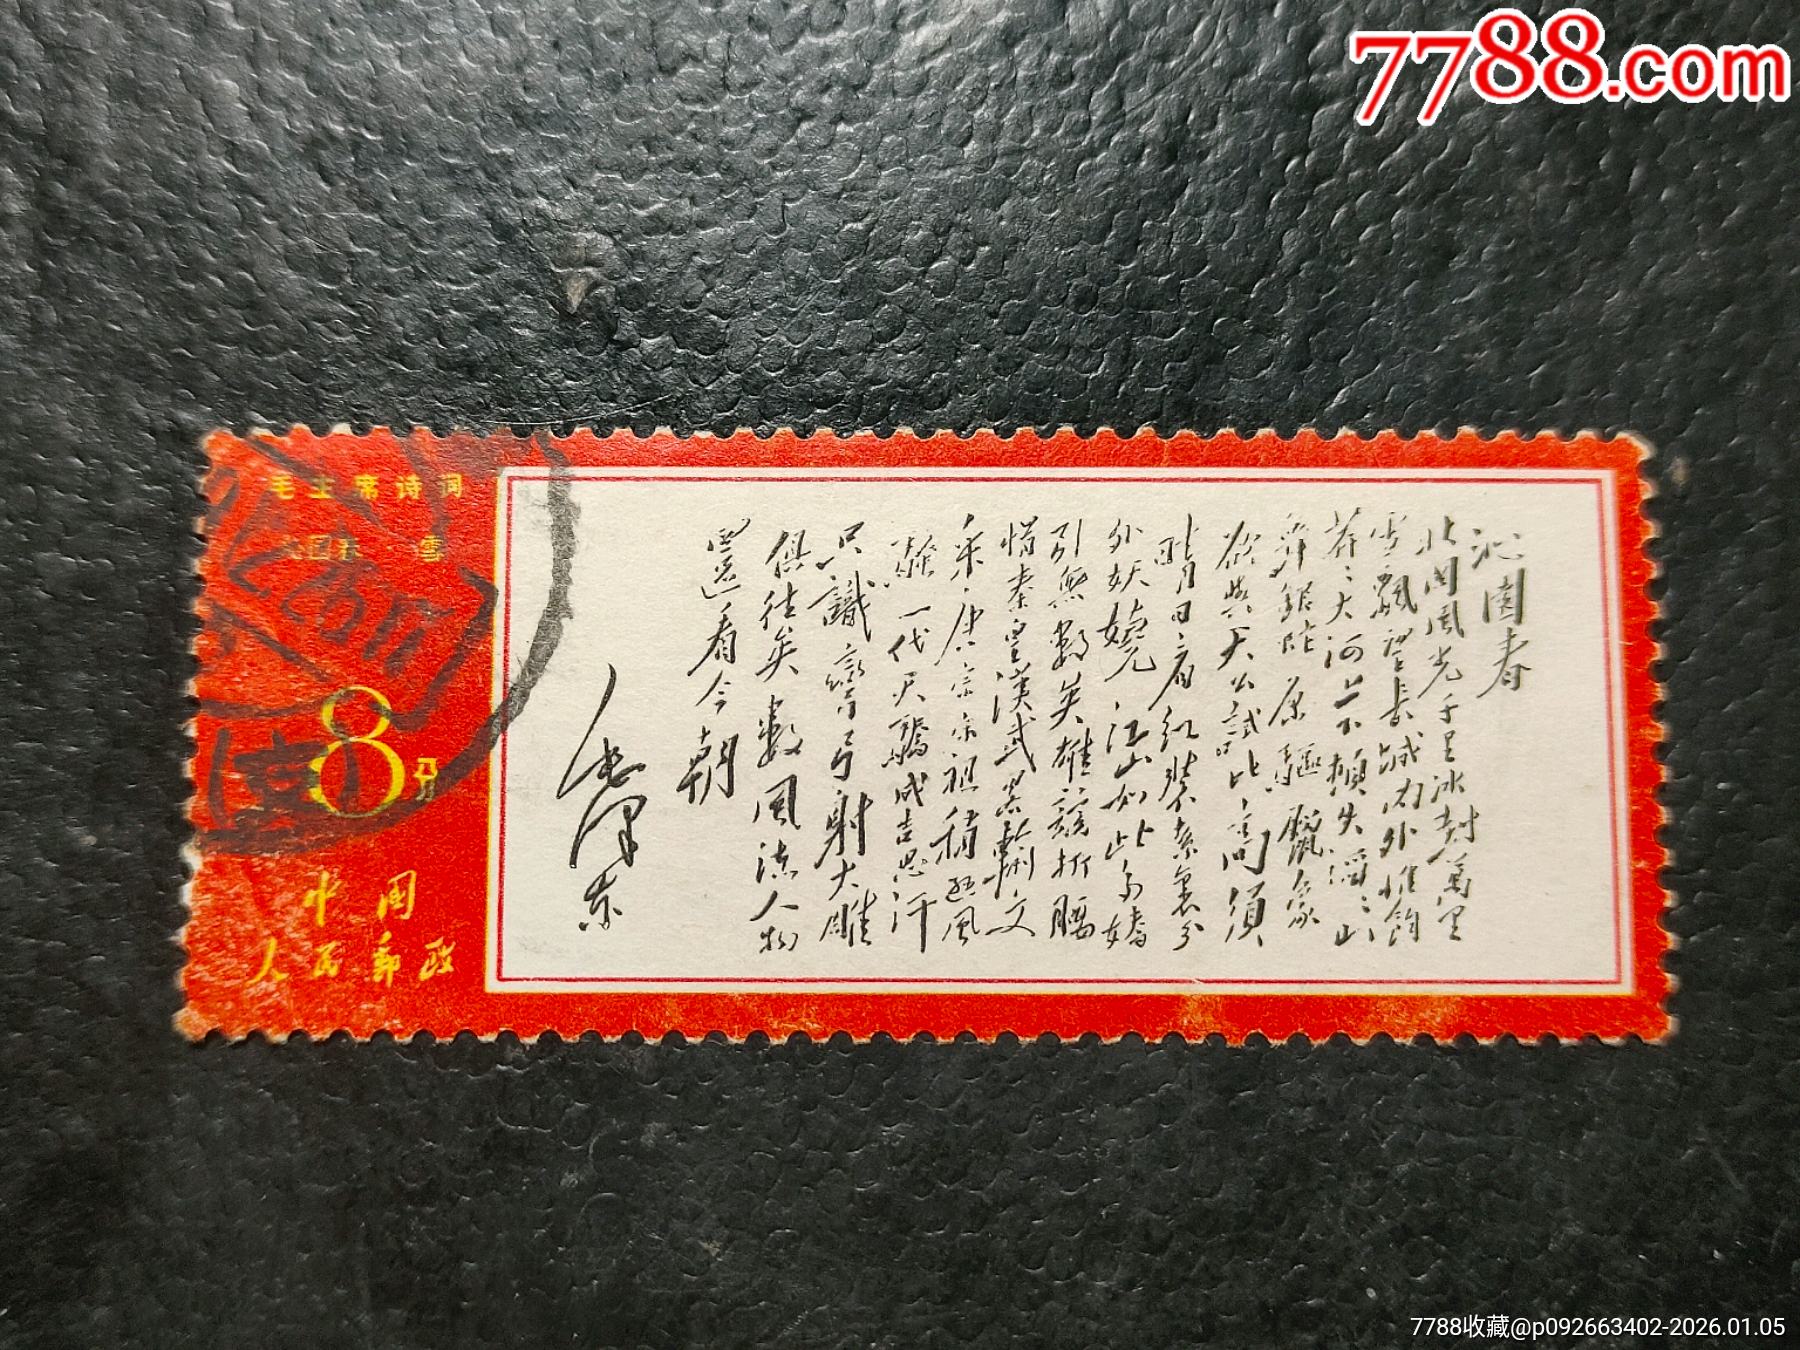 7788.com
毛主席诗词
沁园春·雪
8分
中国
人民郵政
沁園春
北国風光千里冰封萬里
雪飄望長城内外惟餘
莽々大河上下頓失滔々山
舞銀蛇原驅臘象
欲與天公試比高須
晴日看紅裝素裹分
外妖嬈江山如此多嬌
引無數英雄競折腰
惜秦皇漢武略輸文
采唐宗宋祖稍遜風
騷一代天驕成吉思汗
只識彎弓射大雕
俱往矣數風流人物
還看今朝
毛泽东
7788收藏@p092663402-2026.01.05